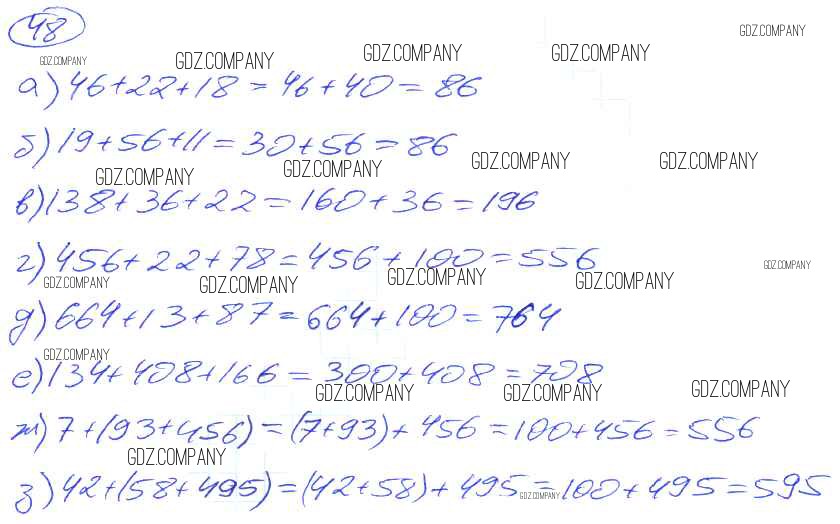 48
GDZ.COMPANY GDZ.COMPANY GDZ.COMPANY GDZ.COMPANY GDZ.COMPANY
а) 46+22+18 = 46+40 = 86
б) 19+56+11 = 30+56 = 86
GDZ.COMPANY GDZ.COMPANY GDZ.COMPANY GDZ.COMPANY
в) 138+36+22 = 160+36 = 196
г) 456+22+78 = 456+100 = 556
GDZ.COMPANY GDZ.COMPANY GDZ.COMPANY GDZ.COMPANY GDZ.COMPANY
д) 664+13+87 = 664+100 = 764
GDZ.COMPANY
е) 134+408+166 = 300+408 = 708
GDZ.COMPANY GDZ.COMPANY GDZ.COMPANY
ж) 7+(93+456) = (7+93)+456 = 100+456 = 556
GDZ.COMPANY
з) 42+(58+495) = (42+58)+495 = 100+495 = 595
GDZ.COMPANY